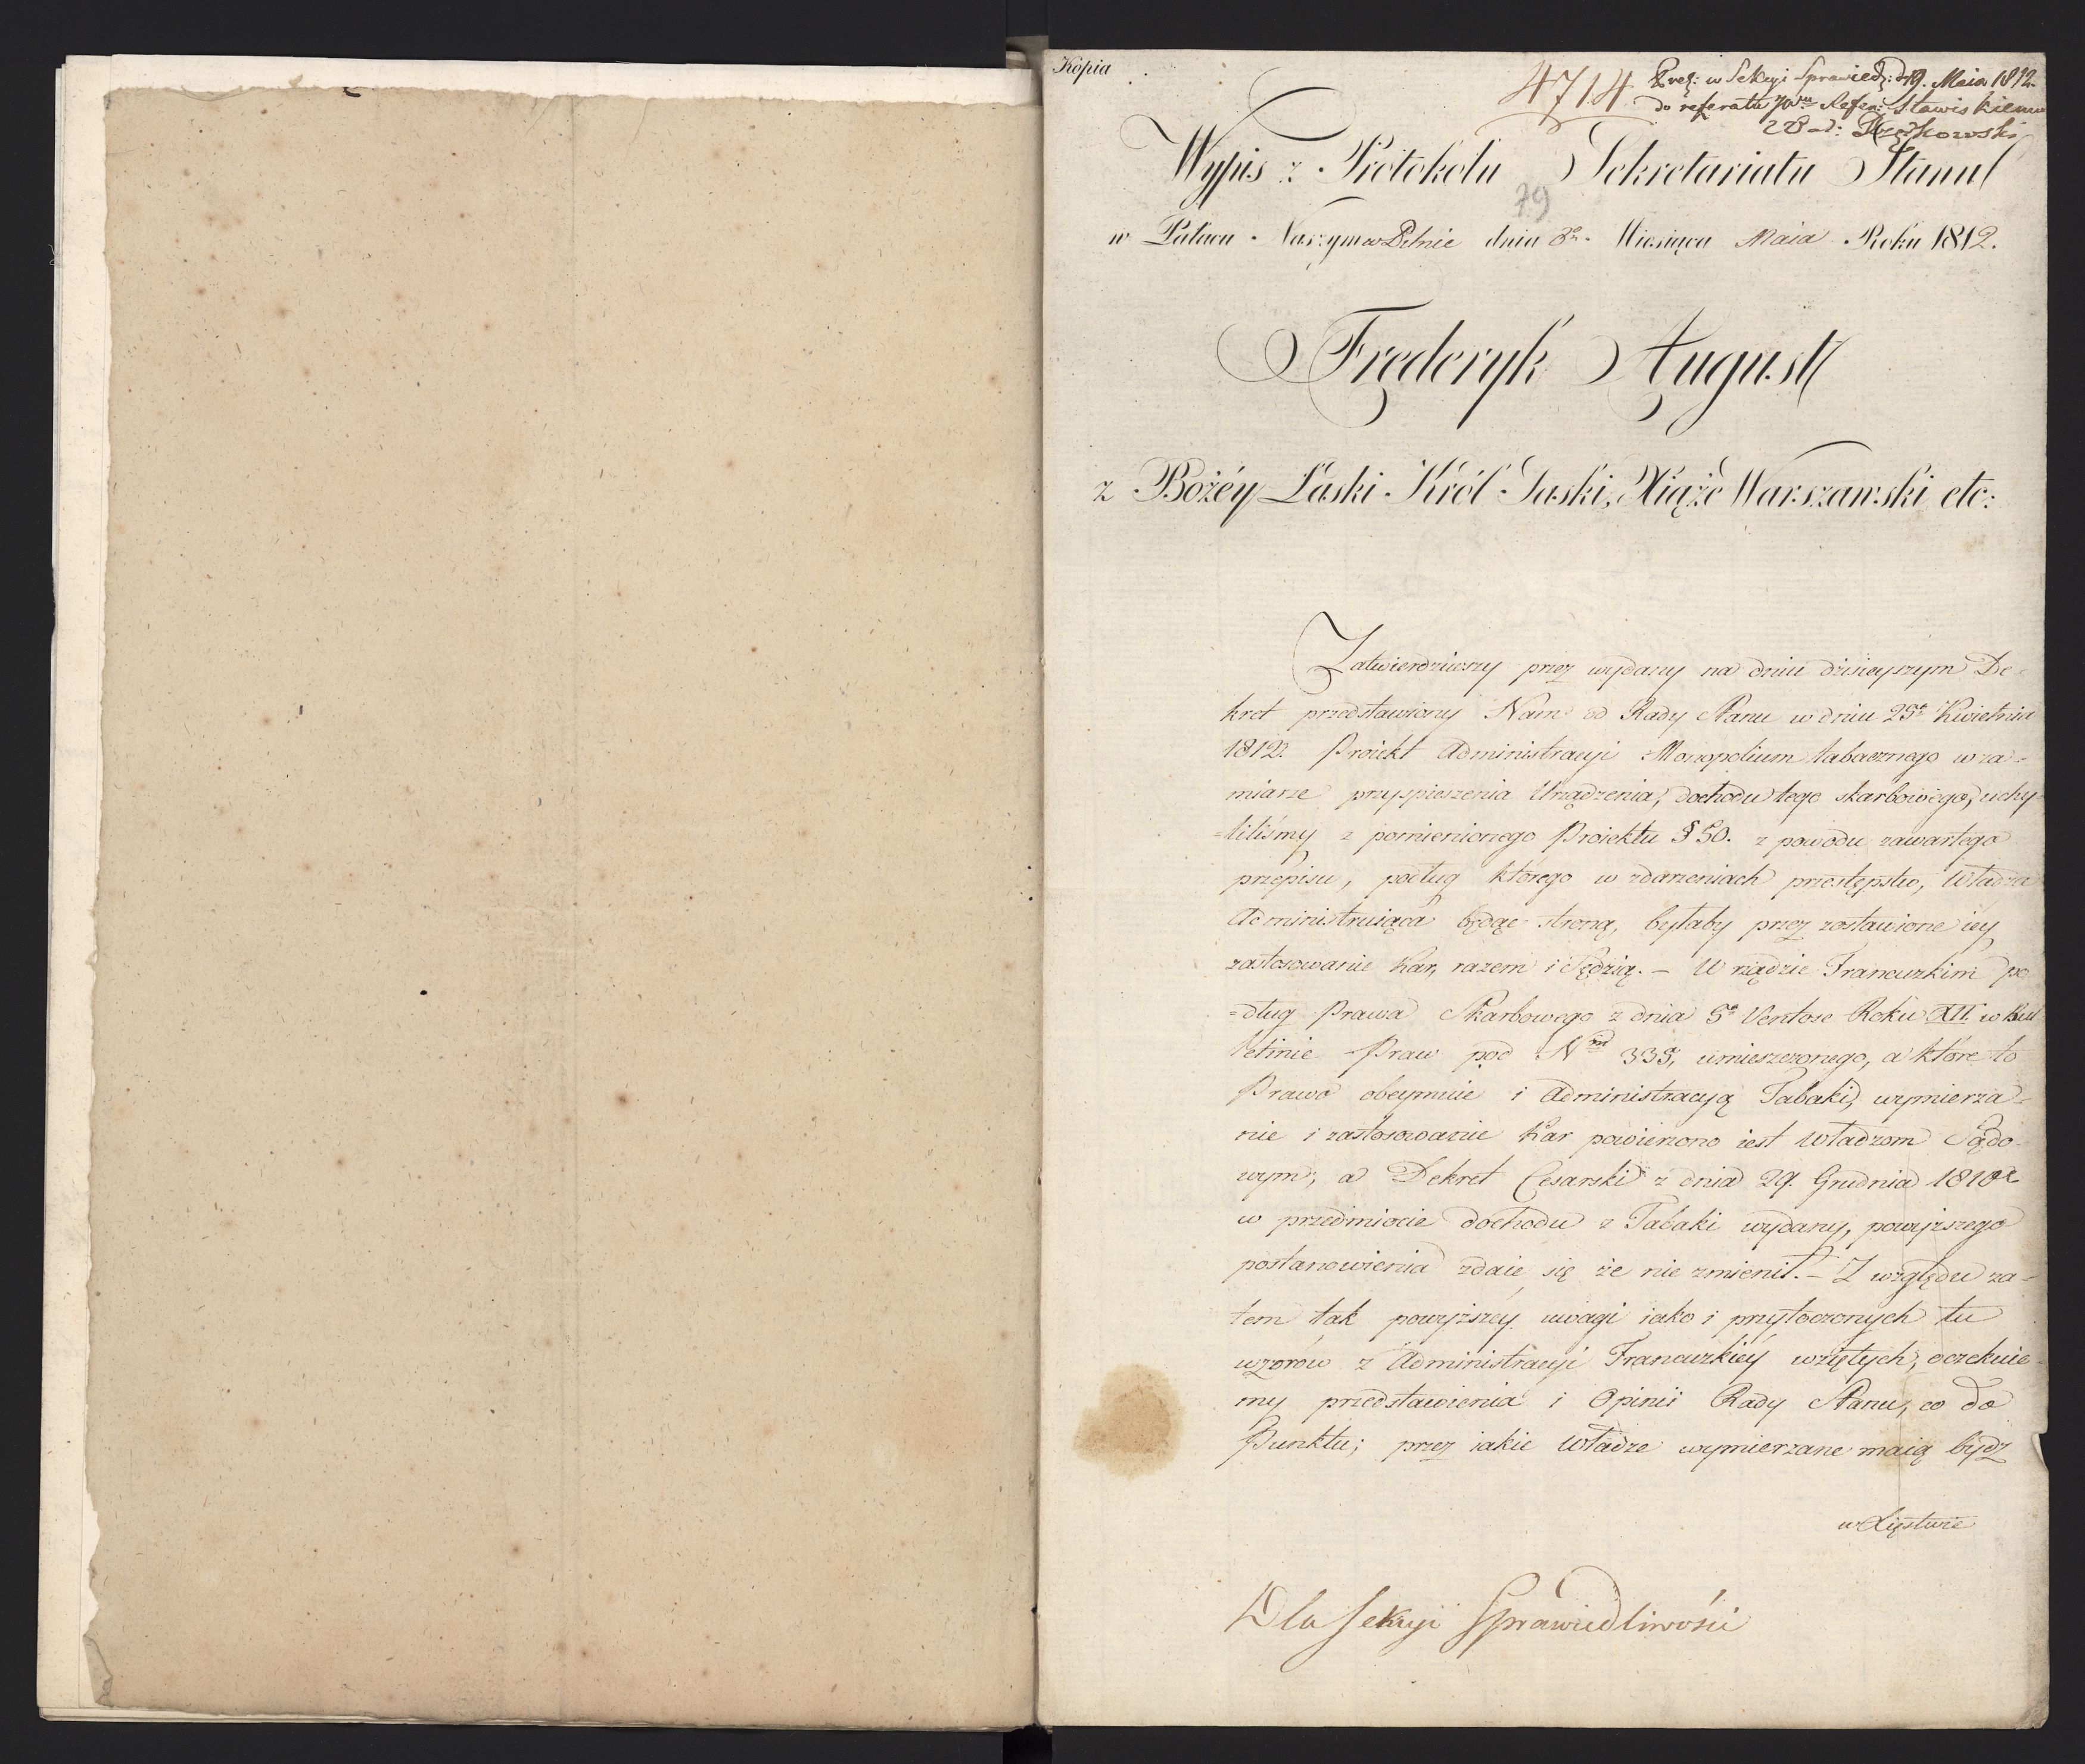 Kopia
4714
Preź: w Sekcyi Sprawied: d 19. Maia 1812
do referatu JWmu Refer: Stawiskiemu
79
Wypis z Protokołu Sekretariatu Stanu
w Pałacu Naszym w Pilnic dnia 8o. Miesiąca Maia Roku 1812.
Frederyk August
z Bożéy Łaski Król Saski, Xiążę Warszawski etc:
Zatwierdziwszy przez wydany na dniu dzisieyszym De-
kret przedstawiony Nam od Rady Stanu w dniu 25o Kwietnia
1812. Proiekt Administracyi Monopolium tabacznego w za-
miarze przyspieszenia Urządzenia, dochodu tego skarbowego, uchy-
=liliśmy z pomienionego Proiektu § 50. z powodu zawartego
przepisu, podług którego w zdarzeniach przestępstw, Władza
Administruiąca będąc stroną, byłaby przez zostawione iey
zastosowanie kar, razem i Sędzią. – W rządzie Francuzkim po
=dług Prawa Skarbowego z dnia 5o Ventose Roku XII. w Bul
letinie Praw pod Nm 335, umieszczonego, a które to
Prawo obeymuie i Administracyą Tabaki, wymierza-
nie i zastosowanie kar powierzono iest Władzom Sądo-
wym; a Dekret Cesarski z dnia 29. Grudnia 1810 r
w przedmiocie dochodu z Tabaki wydany, powyższego
postanowienia zdaie się że nie zmienił. – Z względu za-
tem tak powyższey uwagi iako i przytoczonych tu
wzorów z Administracyi Francuzkiéy wziętych, oczekuie-
my przedstawienia i Opinii Rady Stanu, co do
Punktu; przez iakie Władze wymierzane maią bydź
w Xięstwie
Dla Sekcyi Sprawiedliwości